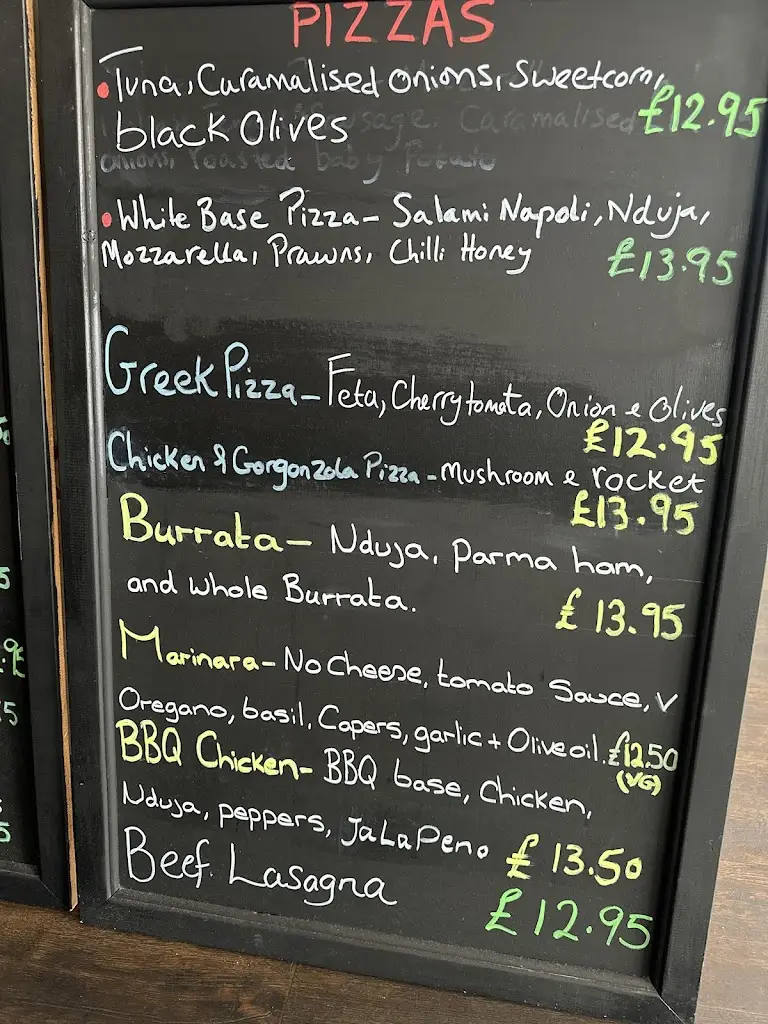 PIZZAS
Tuna, Caramalised onions, Sweetcorn,
black Olives £12.95
onions, roasted baby Potato
• White Base Pizza - Salami Napoli, Nduja,
Mozzarella, Prawns, Chilli Honey £13.95
Greek Pizza - Feta, Cherrytomata, Onion & Olives
£12.95
Chicken & Gorgonzola Pizza - Mushroom & rocket
£13.95
Burrata - Nduja, Parma ham,
and whole Burrata. £13.95
Marinara - No Cheese, tomato Sauce, V
Oregano, basil, Capers, garlic + Olive oil. £12.50
(VG)
BBQ Chicken - BBQ base, Chicken,
Nduja, peppers, JaLaPeno £13.50
Beef Lasagna £12.95